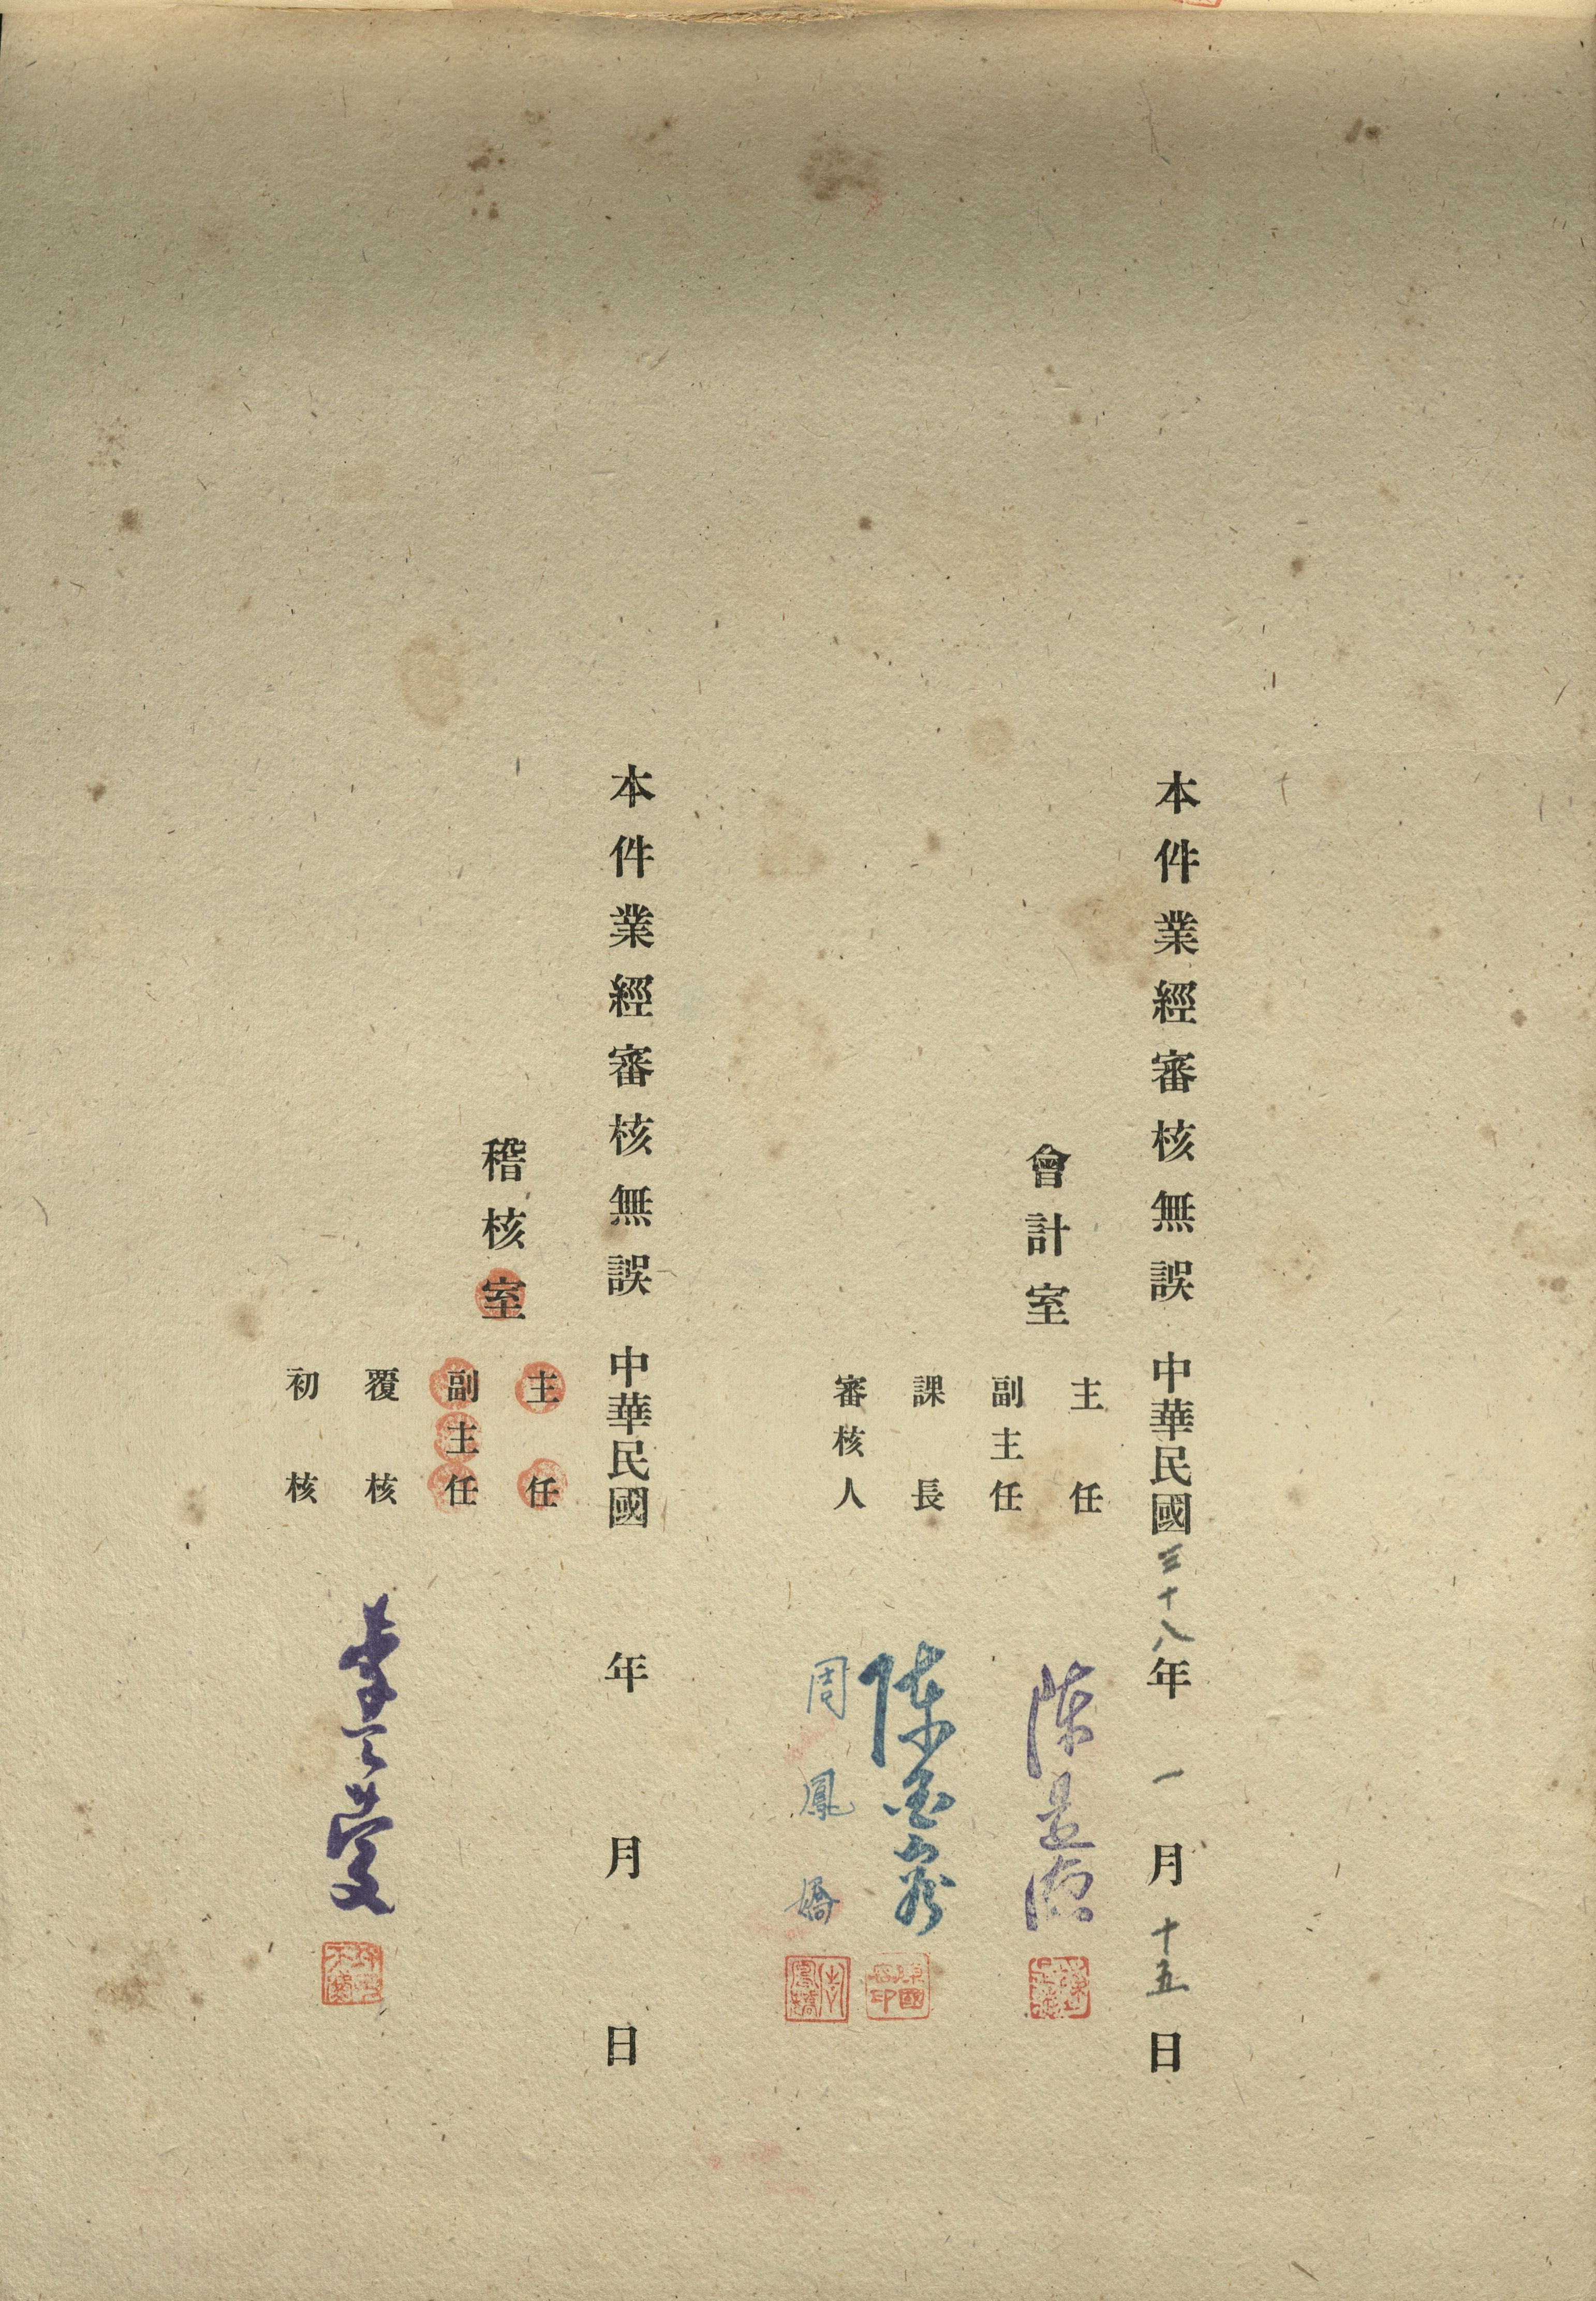 本件業經審核無誤 中華民國三十八年一月十五日
會計室
主任
副主任
課長
審核人
周鳳嬌
本件業經審核無誤 中華民國 年 月 日
稽核室
主任
副主任
覆核
初核